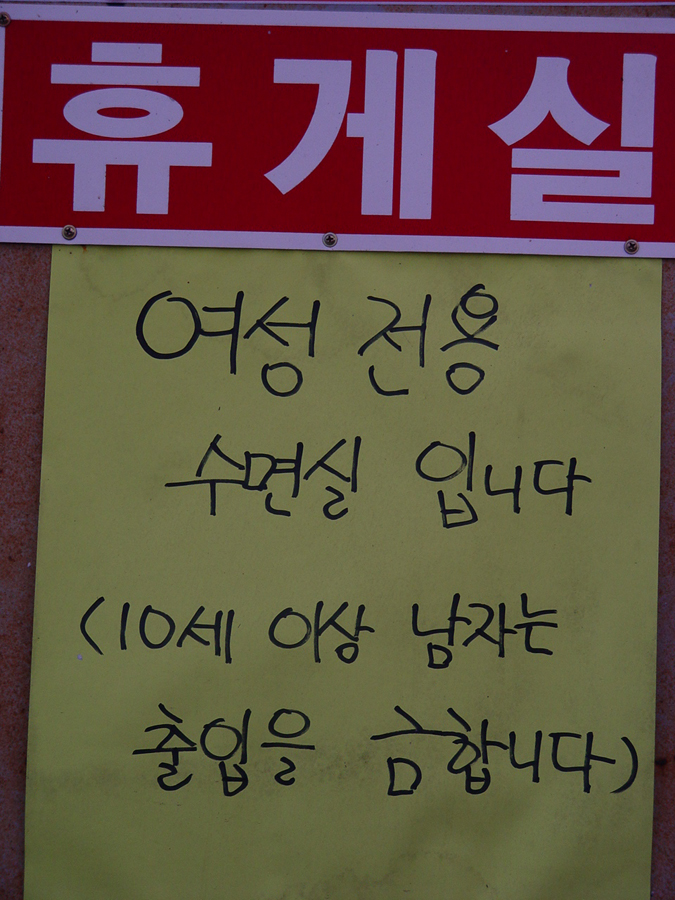 휴게실
여성 전용
수면실 입니다
(10세 이상 남자는
출입을 금합니다)